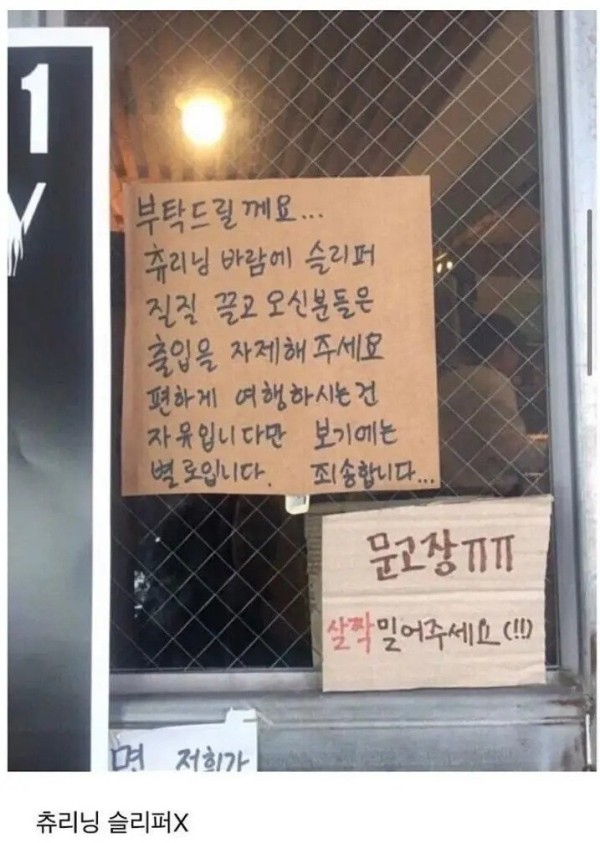 1
부탁드릴께요...
츄리닝 바람에 슬리퍼
질질 끌고 오신분들은
출입을 자제해주세요
편하게 여행하시는건
자유입니다만 보기에는
별로입니다. 죄송합니다...
문고장ㅠㅠ
살짝밀어주세요(!!)
면 저희가
츄리닝 슬리퍼X